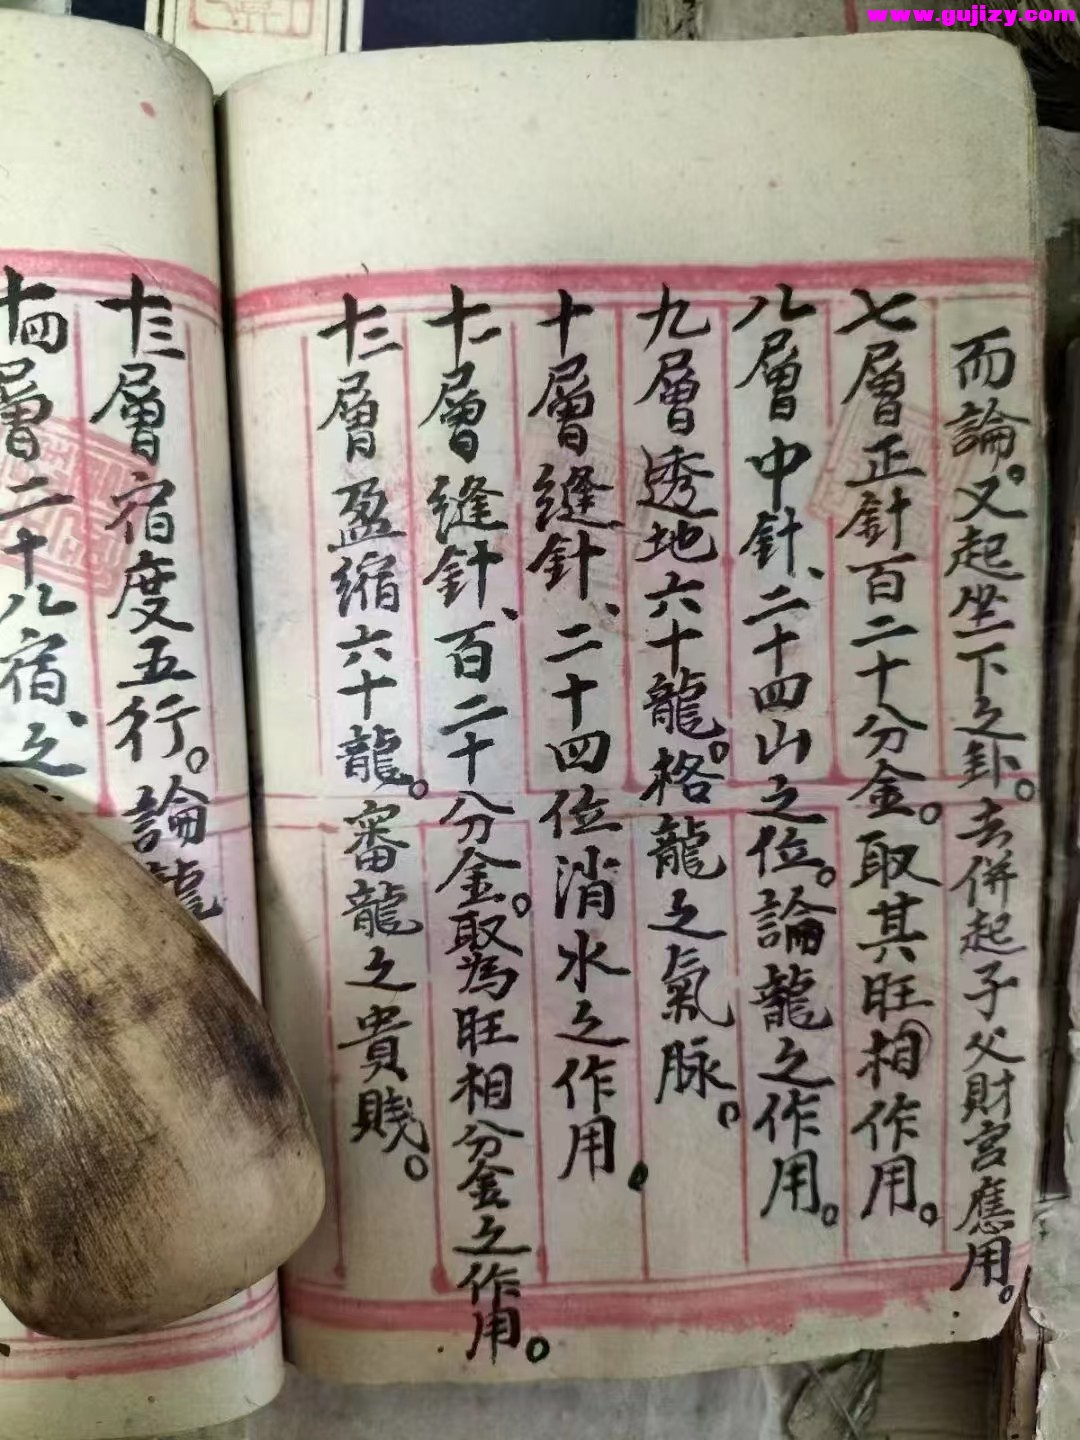 www.gujizy.com
而論。又起坐下之卦。去併起子父財官應用。
七層正針百二十分金。取其旺相作用。
八層中針、二十四山之位。論龍之作用。
九層透地六十龍。格龍之氣脉。
十層縫針、二十四位消水之作用。
十一層縫針、百二十分金。取為旺相分金之作用。
十二層盈縮六十龍。審龍之貴賤。
十三層宿度五行。論龍
十四層二十八宿、之